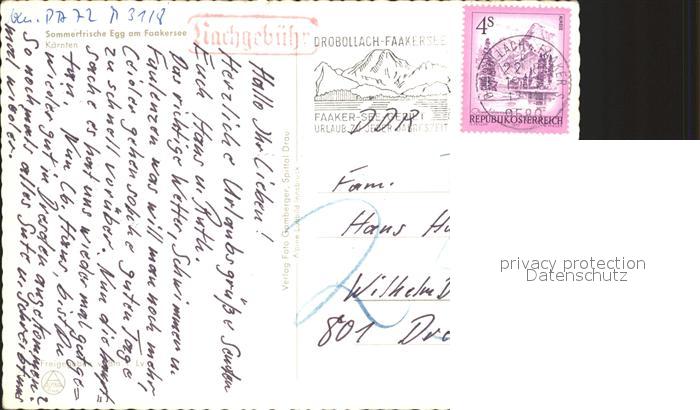 Sommerfrische Egg am Faakersee
Kärnten
Nachgebühr
DROBOLLACH-FAAKERSEE
FAAKER-SEE
URLAUB ZU JEDER JAHRESZEIT
4S
REPUBLIK ÖSTERREICH
DDR
Hallo Ihr Lieben!
Herzliche Urlaubsgrüße senden
Euch Hans u. Ruth.
Das richtige Wetter, Schwimmen u.
Faulenzen was will man noch mehr
Leider gehen solche guten Tage
zu schnell vorüber. Nun die Haupt=
sache es hat uns wieder mal gut ge=
tan. Nun lb. Hans, bist Du
wieder gut in Dresden angekommen?
So nochmals alles Gute u. schreibt uns
mal wieder.
Verlag Foto Gamberger, Spittal Drau
Alpine Luftbild Innsbruck
Fam.
Hans
Wilhelm
801 Dre
privacy protection
Datenschutz